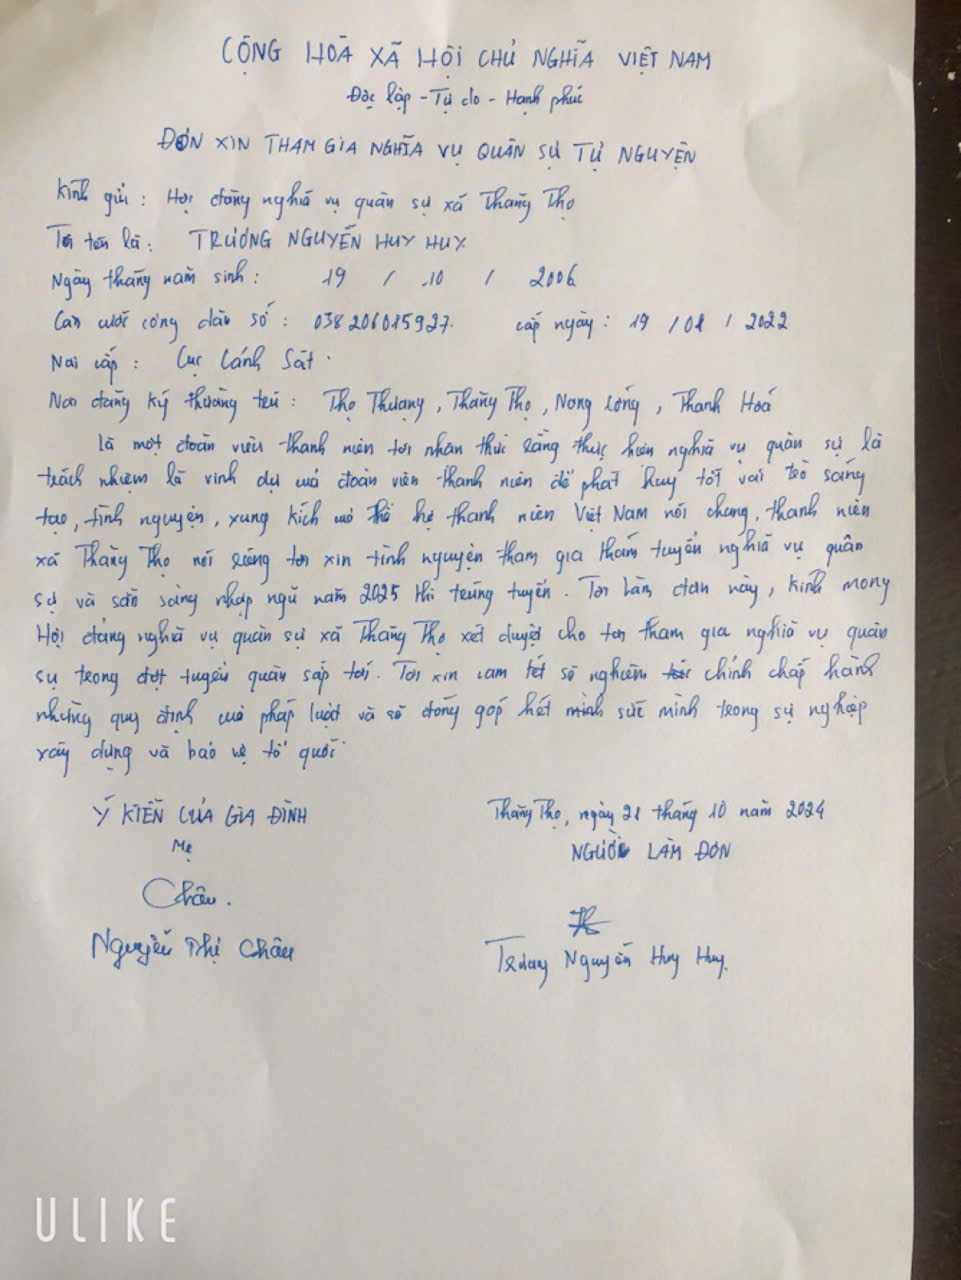 CỘNG HOÀ XÃ HỘI CHỦ NGHĨA VIỆT NAM
Độc lập - Tự do - Hạnh phúc
ĐƠN XIN THAM GIA NGHĨA VỤ QUÂN SỰ TỰ NGUYỆN
Kính gửi : Hội đồng nghĩa vụ quân sự xã Thăng Thọ
Tôi tên là : TRƯƠNG NGUYỄN HUY HUY.
Ngày tháng năm sinh : 19 / 10 / 2006
Căn cước công dân số : 038206015927. cấp ngày : 19 / 08 / 2022
Nơi cấp : Cục Cảnh Sát .
Nơi đăng ký thường trú : Thọ Thượng, Thăng Thọ, Nông Cống, Thanh Hoá
là một đoàn viên thanh niên tôi nhận thức rằng thực hiện nghĩa vụ quân sự là
trách nhiệm là vinh dự mà đoàn viên thanh niên để phát huy tốt vai trò sáng
tạo, tình nguyện, xung kích mà thế hệ thanh niên Việt Nam nói chung, thanh niên
xã Thăng Thọ nói riêng tôi xin tình nguyện tham gia thám tuyển nghĩa vụ quân
sự và sẵn sàng nhập ngũ năm 2025 khi trúng tuyển. Tôi làm đơn này, kính mong
Hội đồng nghĩa vụ quân sự xã Thăng Thọ xét duyệt cho tôi tham gia nghĩa vụ quân
sự trong đợt tuyển quân sắp tới. Tôi xin cam kết sẽ nghiêm chỉnh chấp hành
những quy định mà pháp luật và sẽ đóng góp hết mình sức mình trong sự nghiệp
xây dựng và bảo vệ tổ quốc.
Ý KIẾN CỦA GIA ĐÌNH
Mẹ
Châu.
Nguyễn Thị Châu
Thăng Thọ, ngày 21 tháng 10 năm 2024
NGƯỜI LÀM ĐƠN
Trương Nguyễn Huy Huy.
ULIKE